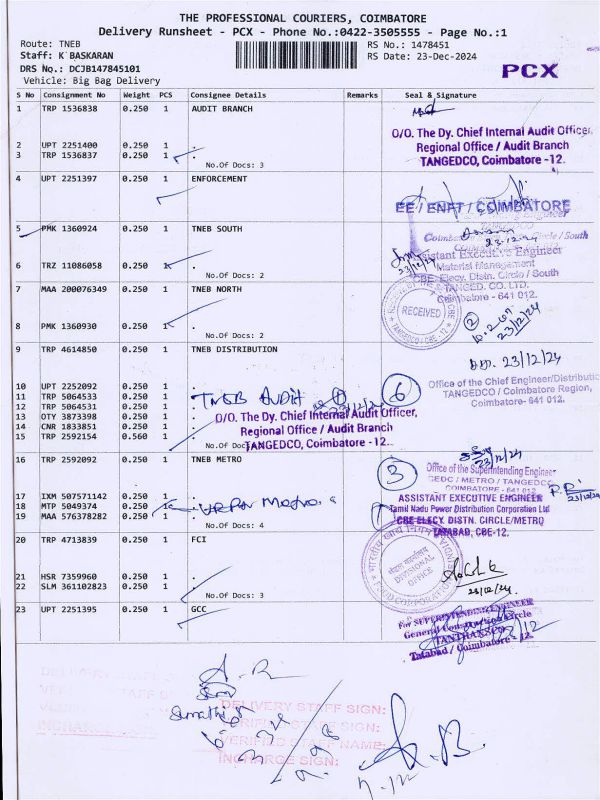 THE PROFESSIONAL COURIERS, COIMBATORE
Delivery Runsheet - PCX - Phone No.:0422-3505555 - Page No.:1
Route: TNEB
RS No.: 1478451
Staff: K BASKARAN
RS Date: 23-Dec-2024
DRS No.: DCJB147845101
Vehicle: Big Bag Delivery
PCX
S No Consignment No Weight PCS Consignee Details Remarks Seal & Signature
1 TRP 1536838 0.250 1 AUDIT BRANCH
O/O. The Dy. Chief Internal Audit Officer,
Regional Office / Audit Branch
TANGEDCO, Coimbatore -12.
2 UPT 2251400 0.250 1 .
3 TRP 1536837 0.250 1 .
No.Of Docs: 3
4 UPT 2251397 0.250 1 ENFORCEMENT
EE / ENFT / COIMBATORE
5 PMK 1360924 0.250 1 TNEB SOUTH
23.12.24
Assistant Executive Engineer
Material Management
CBE. Elecy. Distn. Circle / South
TANGED. CO. LTD.
Coimbatore - 641 012.
23/12/24
6 TRZ 11086058 0.250 1 .
No.Of Docs: 2
7 MAA 200076349 0.250 1 TNEB NORTH
RECEIVED
TANGEDCO / CBE - 12
2
23/12/24
8 PMK 1360930 0.250 1 .
No.Of Docs: 2
9 TRP 4614850 0.250 1 TNEB DISTRIBUTION
23/12/24
Office of the Chief Engineer/Distribution
TANGEDCO / Coimbatore Region,
Coimbatore- 641 012.
10 UPT 2252092 0.250 1 .
11 TRP 5064533 0.250 1 .
12 TRP 5064531 0.250 1 .
13 OTY 3873398 0.250 1 .
14 CNR 1833851 0.250 1 .
15 TRP 2592154 0.560 1 .
TNEB AUDIT
6
O/O. The Dy. Chief Internal Audit Officer,
Regional Office / Audit Branch
TANGEDCO, Coimbatore -12.
16 TRP 2592092 0.250 1 TNEB METRO
3
23/12/24
Office of the Superintending Engineer
CEDC / METRO / TANGEDCO
COIMBATORE - 641 012
ASSISTANT EXECUTIVE ENGINEER
Tamil Nadu Power Distribution Corporation Ltd
CBE ELECY. DISTN. CIRCLE/METRO
TATABAD, CBE-12.
23/12/24
17 IXM 507571142 0.250 1 .
18 MTP 5049374 0.250 1
URBAN Metro
19 MAA 576378282 0.250 1 .
No.Of Docs: 4
20 TRP 4713839 0.250 1 FCI
DIVISIONAL
OFFICE
23/12/24
21 HSR 7359960 0.250 1 .
22 SLM 361102823 0.250 1 .
No.Of Docs: 3
23 UPT 2251395 0.250 1 GCC
For SUPERINTENDING ENGINEER
General Construction Circle
TANTRANSCO
Tatabad / Coimbatore - 12.
DELIVERY STAFF SIGN:
VERIFIED STAFF SIGN:
VERIFIED STAFF NAME:
INCHARGE SIGN: